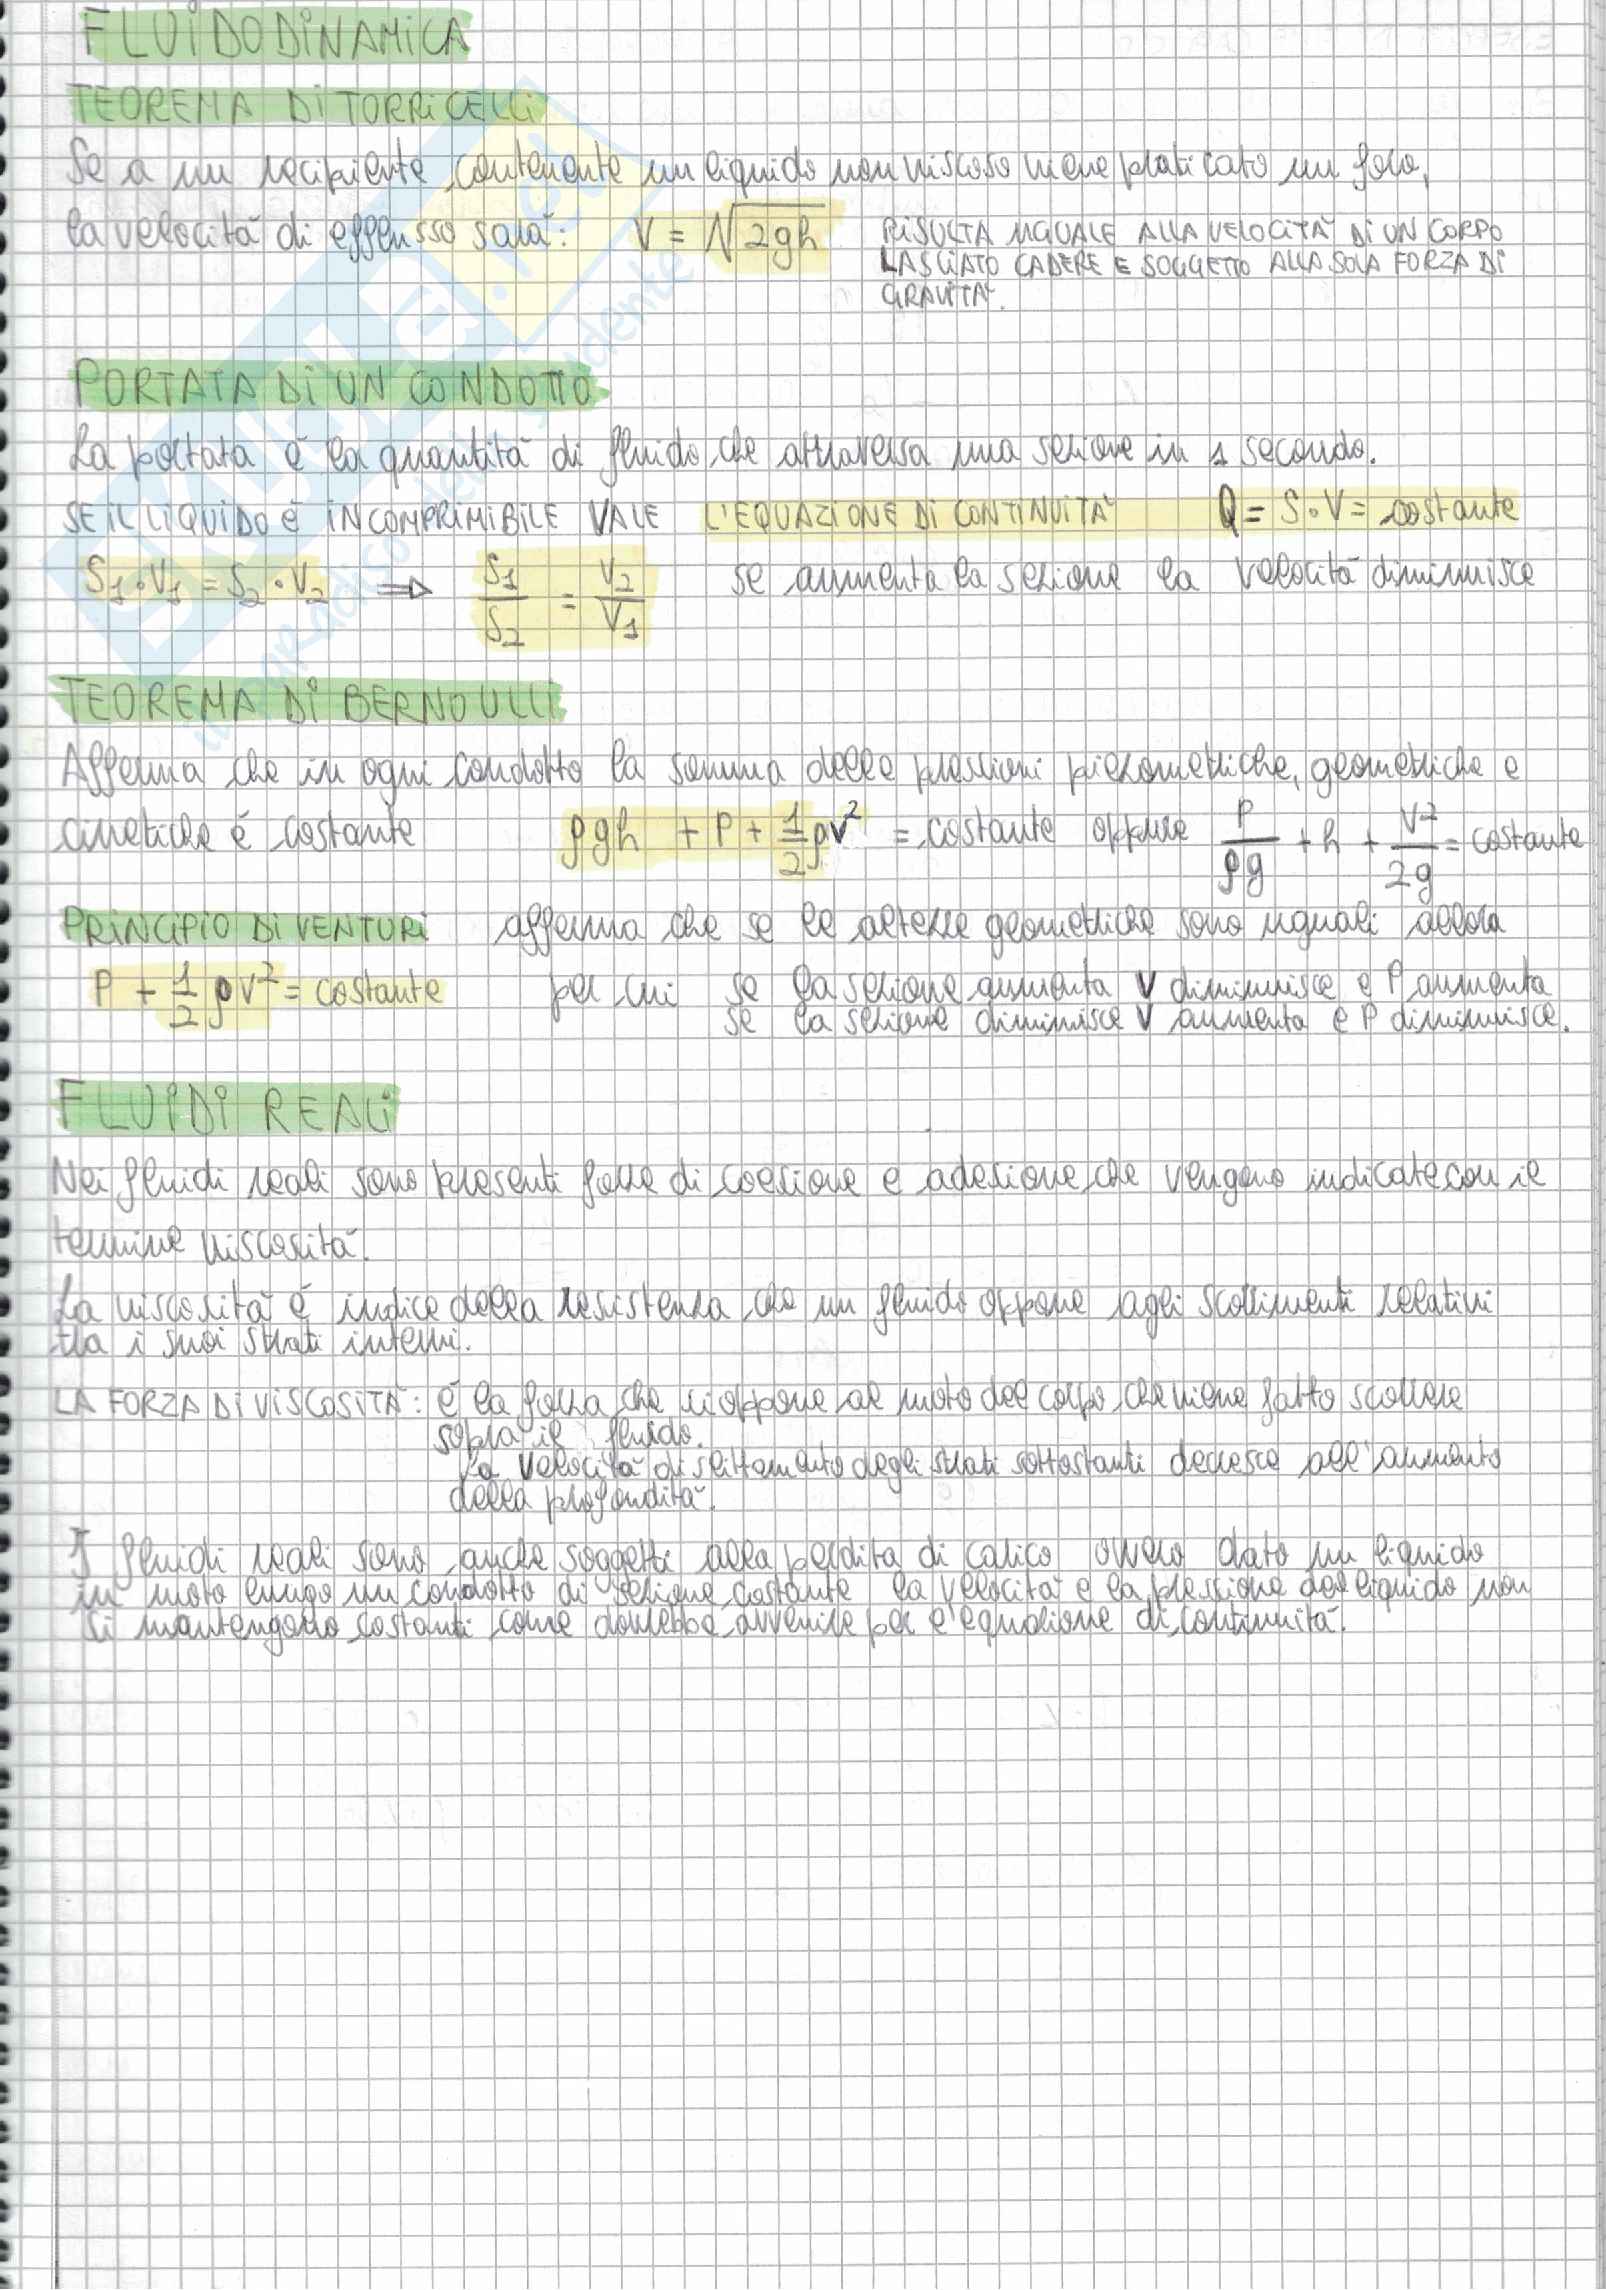 FLUIDODINAMICA
TEOREMA DI TORRICELLI
Se a un recipiente contenente un liquido non viscoso viene praticato un foro,
la velocità di efflusso sarà: V = √2gh RISULTA UGUALE ALLA VELOCITÀ DI UN CORPO
LASCIATO CADERE E SOGGETTO ALLA SOLA FORZA DI
GRAVITÀ.
PORTATA DI UN CONDOTTO
La portata è la quantità di fluido che attraversa una sezione in 1 secondo.
SE IL LIQUIDO È INCOMPRIMIBILE VALE L'EQUAZIONE DI CONTINUITÀ Q = S•V = costante
S1•V1 = S2•V2 ⇒ S1/S2 = V2/V1 se aumenta la sezione la velocità diminuisce
TEOREMA DI BERNOULLI
Afferma che in ogni condotto la somma delle pressioni piezometriche, geometriche e
cinetiche è costante ρgh + P + 1/2 ρv² = costante oppure P/ρg + h + V²/2g = costante
PRINCIPIO DI VENTURI afferma che se le altezze geometriche sono uguali allora
P + 1/2 ρV² = costante per cui se la sezione aumenta V diminuisce e P aumenta
se la sezione diminuisce V aumenta e P diminuisce.
FLUIDI REALI
Nei fluidi reali sono presenti forze di coesione e adesione che vengono indicate con il
termine viscosità.
La viscosità è indice della resistenza che un fluido oppone agli scorrimenti relativi
tra i suoi strati interni.
LA FORZA DI VISCOSITÀ: è la forza che si oppone al moto del corpo che viene fatto scorrere
sopra il fluido.
La velocità di slittamento degli strati sottostanti decresce all'aumento
della profondità.
I fluidi reali sono anche soggetti alla perdita di carico ovvero dato un liquido
in moto lungo un condotto di sezione costante la velocità e la pressione del liquido non
si mantengono costanti come dovrebbe avvenire per l'equazione di continuità.
SKUOLA.net